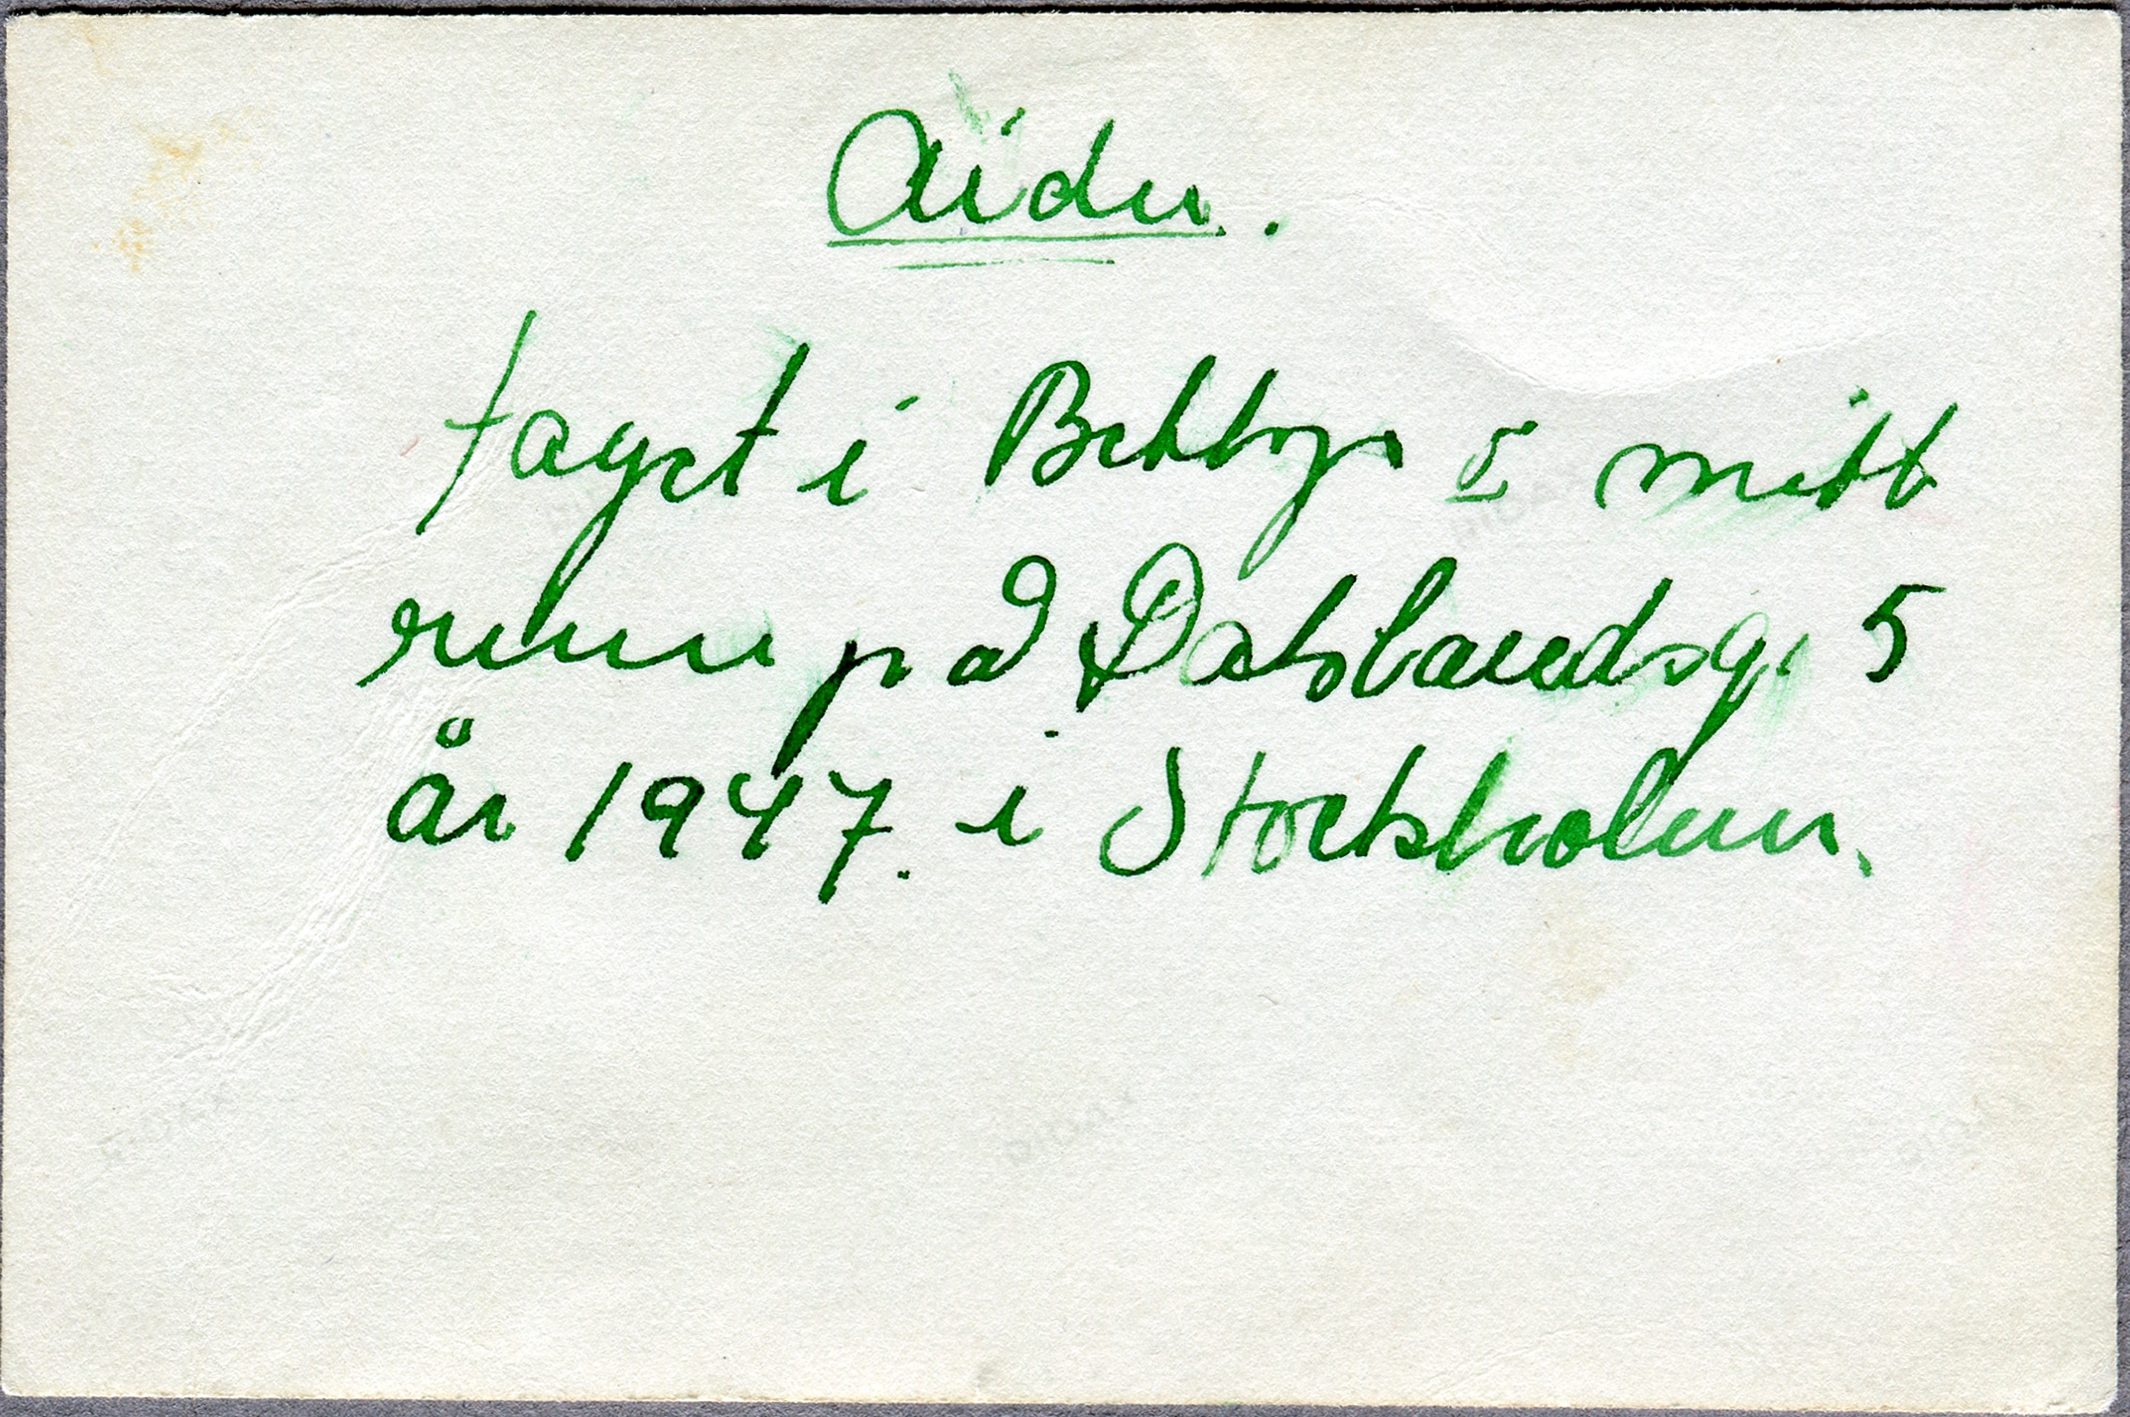 Aidu.
taget i Bettys & mitt
rum på Dalslandsg. 5
år 1947. i Stockholm.